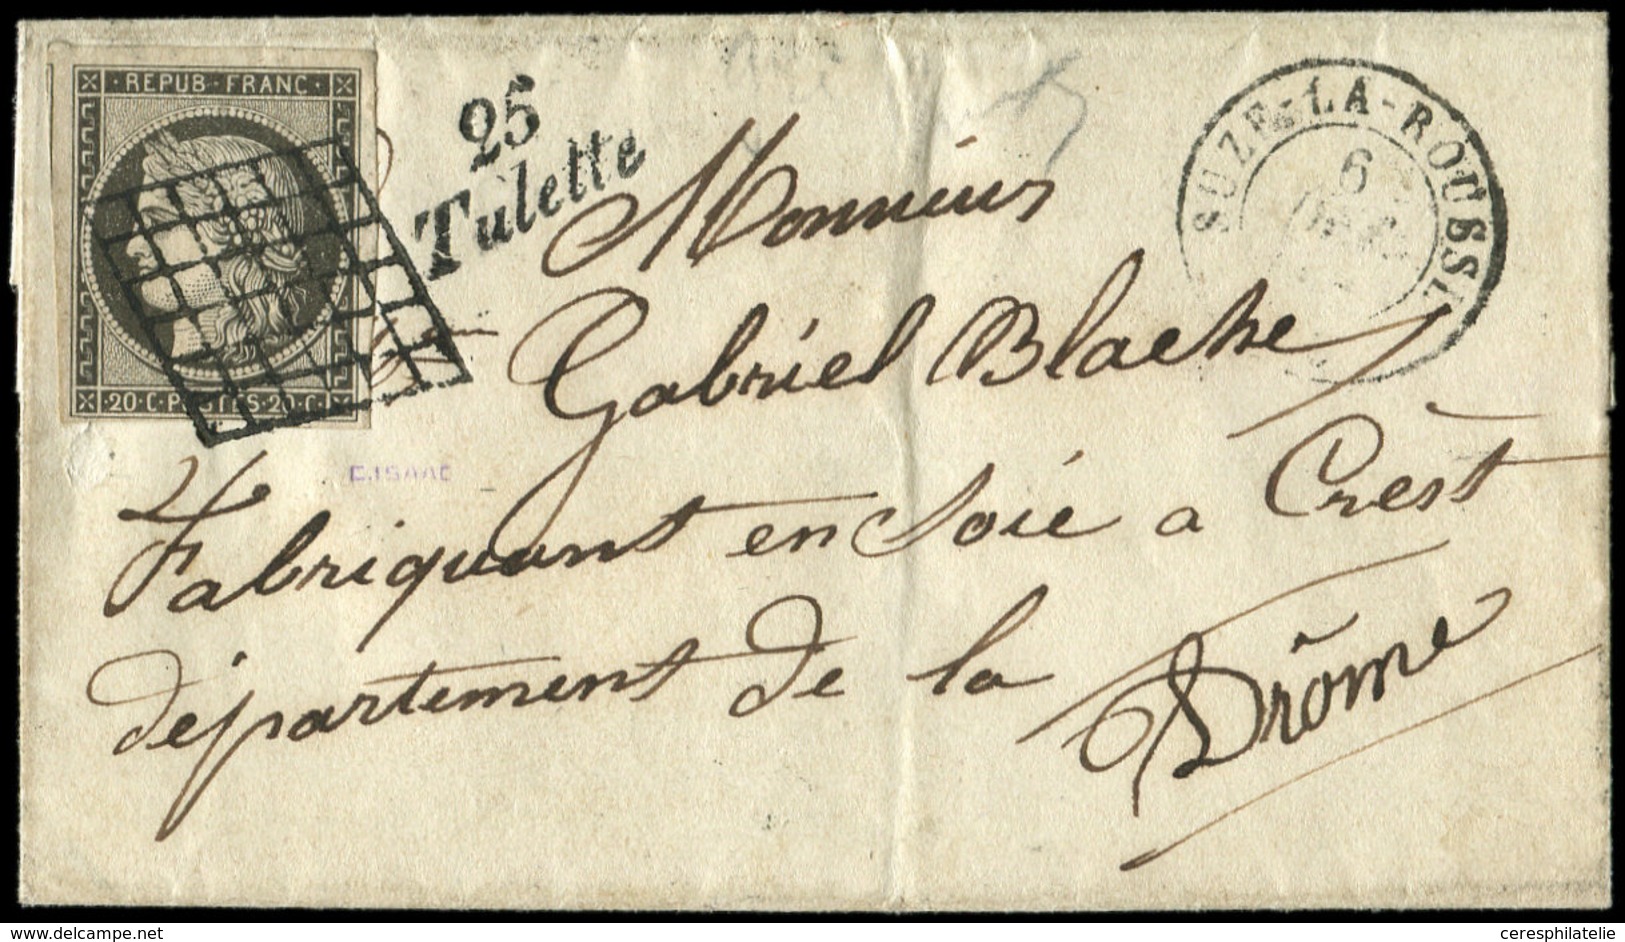 REPUB·FRANC·
20·C·POSTES·20·C·
25
Tulette
SUZE-LA-ROUSSE
6
Monsieur
Gabriel Blache
Fabriquant en Soie a Crest
département de la
Drôme
E.ISAAC
www.delcampe.net
ceresphilatelie